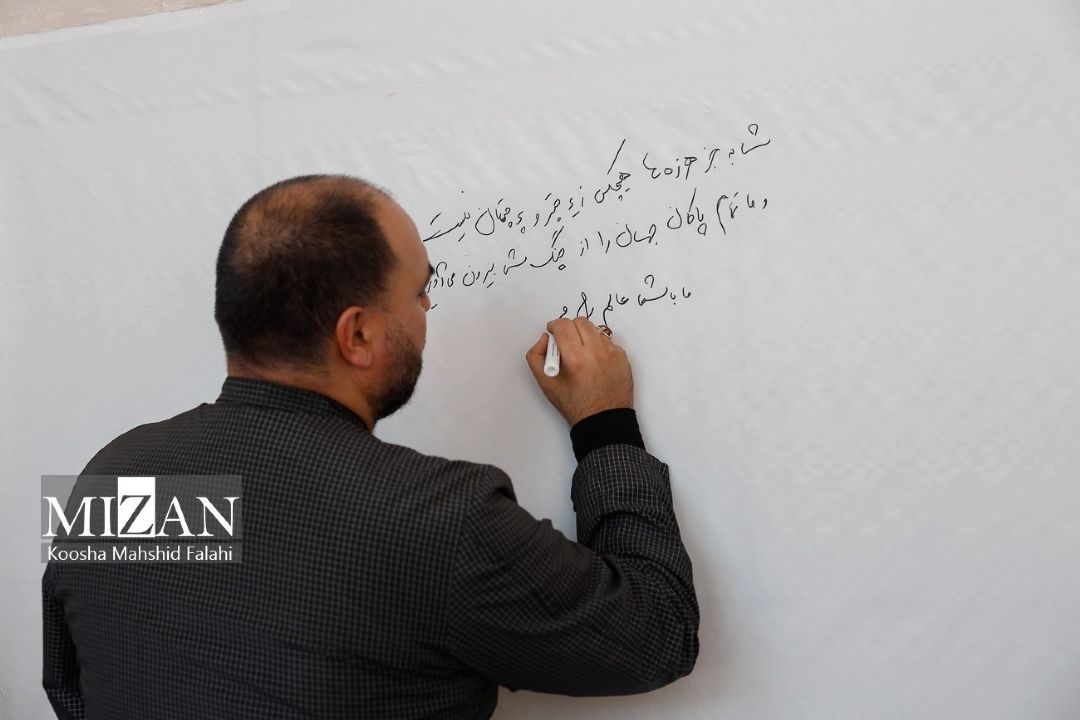 شما به جز هرزه ها هیچکس زیر چتر و پرچمتان نیست
و ما تمام پاکان جهان را از چنگ شما بیرون می‌آوریم
ما با شما عالم را
MIZAN
Koosha Mahshid Falahi